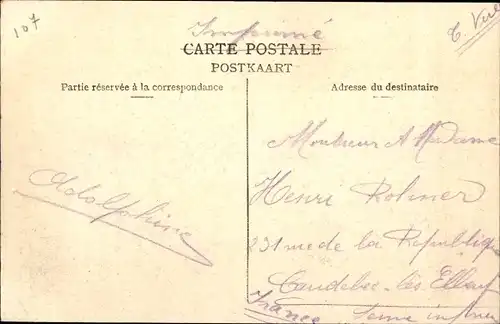 107
Imprimé
CARTE POSTALE
POSTKAART
Partie réservée à la correspondance
Adresse du destinataire
Adolphine
Monsieur & Madame
Henri Rohmer
231 rue de la Republique
Caudebec-lès-Elbeuf
France Seine infre